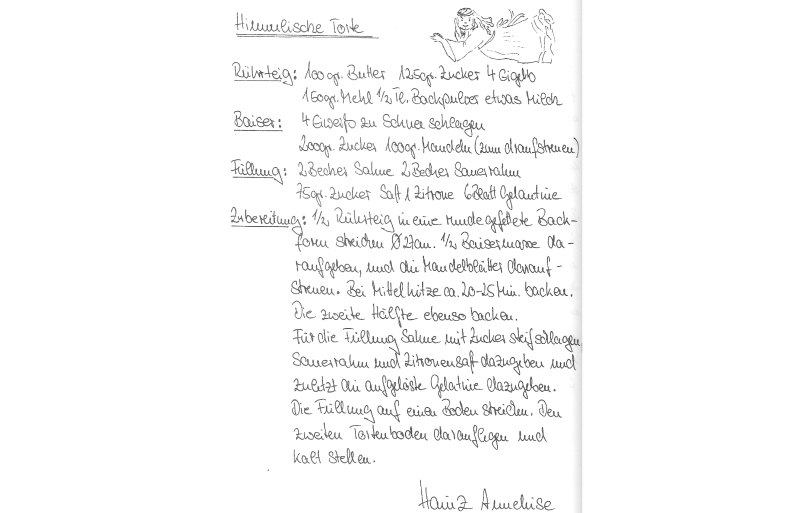 Himmlische Torte
Rührteig: 100gr. Butter 125gr. Zucker 4 Eigelb
150gr. Mehl 1/2 Tl. Backpulver etwas Milch
Baiser: 4 Eiweiß zu Schnee schlagen
200gr. Zucker 100gr. Mandeln (zum draufstreuen)
Füllung: 2 Becher Sahne 2 Becher Sauerrahm
75gr. Zucker Saft 1 Zitrone 6 Blatt Gelantine
Zubereitung: 1/2 Rührteig in eine runde gefettete Back-
form streichen Ø 27cm. 1/2 Baisermasse da-
raufgeben, und die Mandelblätter darauf-
streuen. Bei Mittelhitze ca. 20-25 Min. backen.
Die zweite Hälfte ebenso backen.
Für die Füllung Sahne mit Zucker steifschlagen,
Sauerrahm und Zitronensaft dazugeben und
zuletzt die aufgelöste Gelatine dazugeben.
Die Füllung auf einen Boden streichen. Den
zweiten Tortenboden darauflegen und
kalt stellen.
Hainz Anneliese